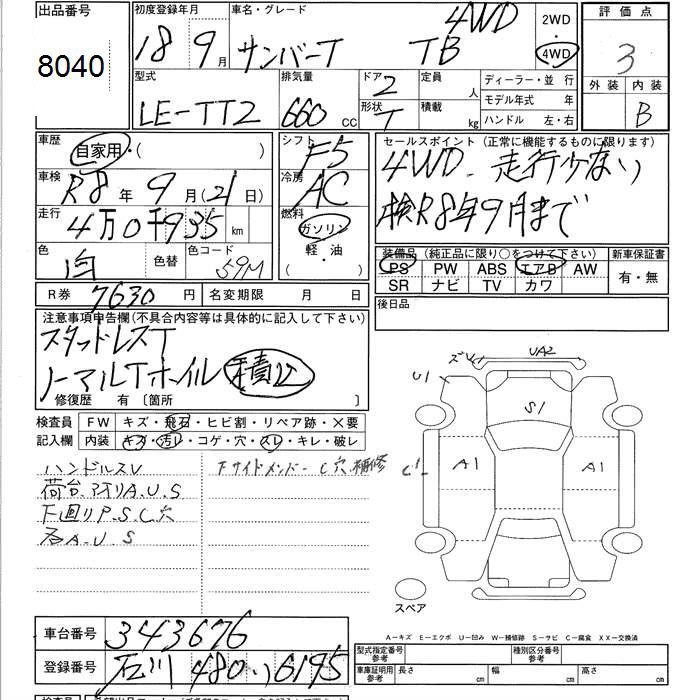 出品番号
8040
初度登録年月
18 9月
車名・グレード
サンバーT TB 4WD
2WD
4WD
評価点
3
外装 内装
B
型式
LE-TT2
排気量
660 CC
ドア 2
形状 T
定員 人
積載 kg
ディーラー・並 行
モデル年式 年
ハンドル 左・右
車歴
自家用・( )
シフト
F5
車検
R8年 9月(21日)
冷房
AC
走行
4万0千935 km
燃料
ガソリン
軽・油
色
白
色替
色コード
59M
R券 7630 円
名変期限 月 日
セールスポイント (正常に機能するものに限ります)
4WD. 走行少ない
検R8年9月まで
装備品 (純正品に限り○をつけて下さい)
新車保証書
PS PW ABS エアB AW
SR ナビ TV カワ
有・無
後日品
注意事項申告欄(不具合内容等は具体的に記入して下さい)
スタッドレスT
ノーマルTホイル 積込
修復歴 有 〔箇所 〕
検査員
記入欄
FW キズ・飛石・ヒビ割・リペア跡・×要
内装 キズ・汚レ・コゲ・穴・スレ・キレ・破レ
ハンドルスレ
荷台.アオリA.U.S
下廻りP.S.C穴
石A.U S
Fサイドメンバー C穴 補修
UA2
U1
S1
A1
A1
スペア
A-キズ E-エクボ U-凹み W-補修跡 S-サビ C-腐食 XX-交換済
車台番号
343676
登録番号
石川 480 い 6195
型式指定番号
参考
種別区分番号
参考
車庫証明用
参考
長さ cm
幅 cm
高さ cm